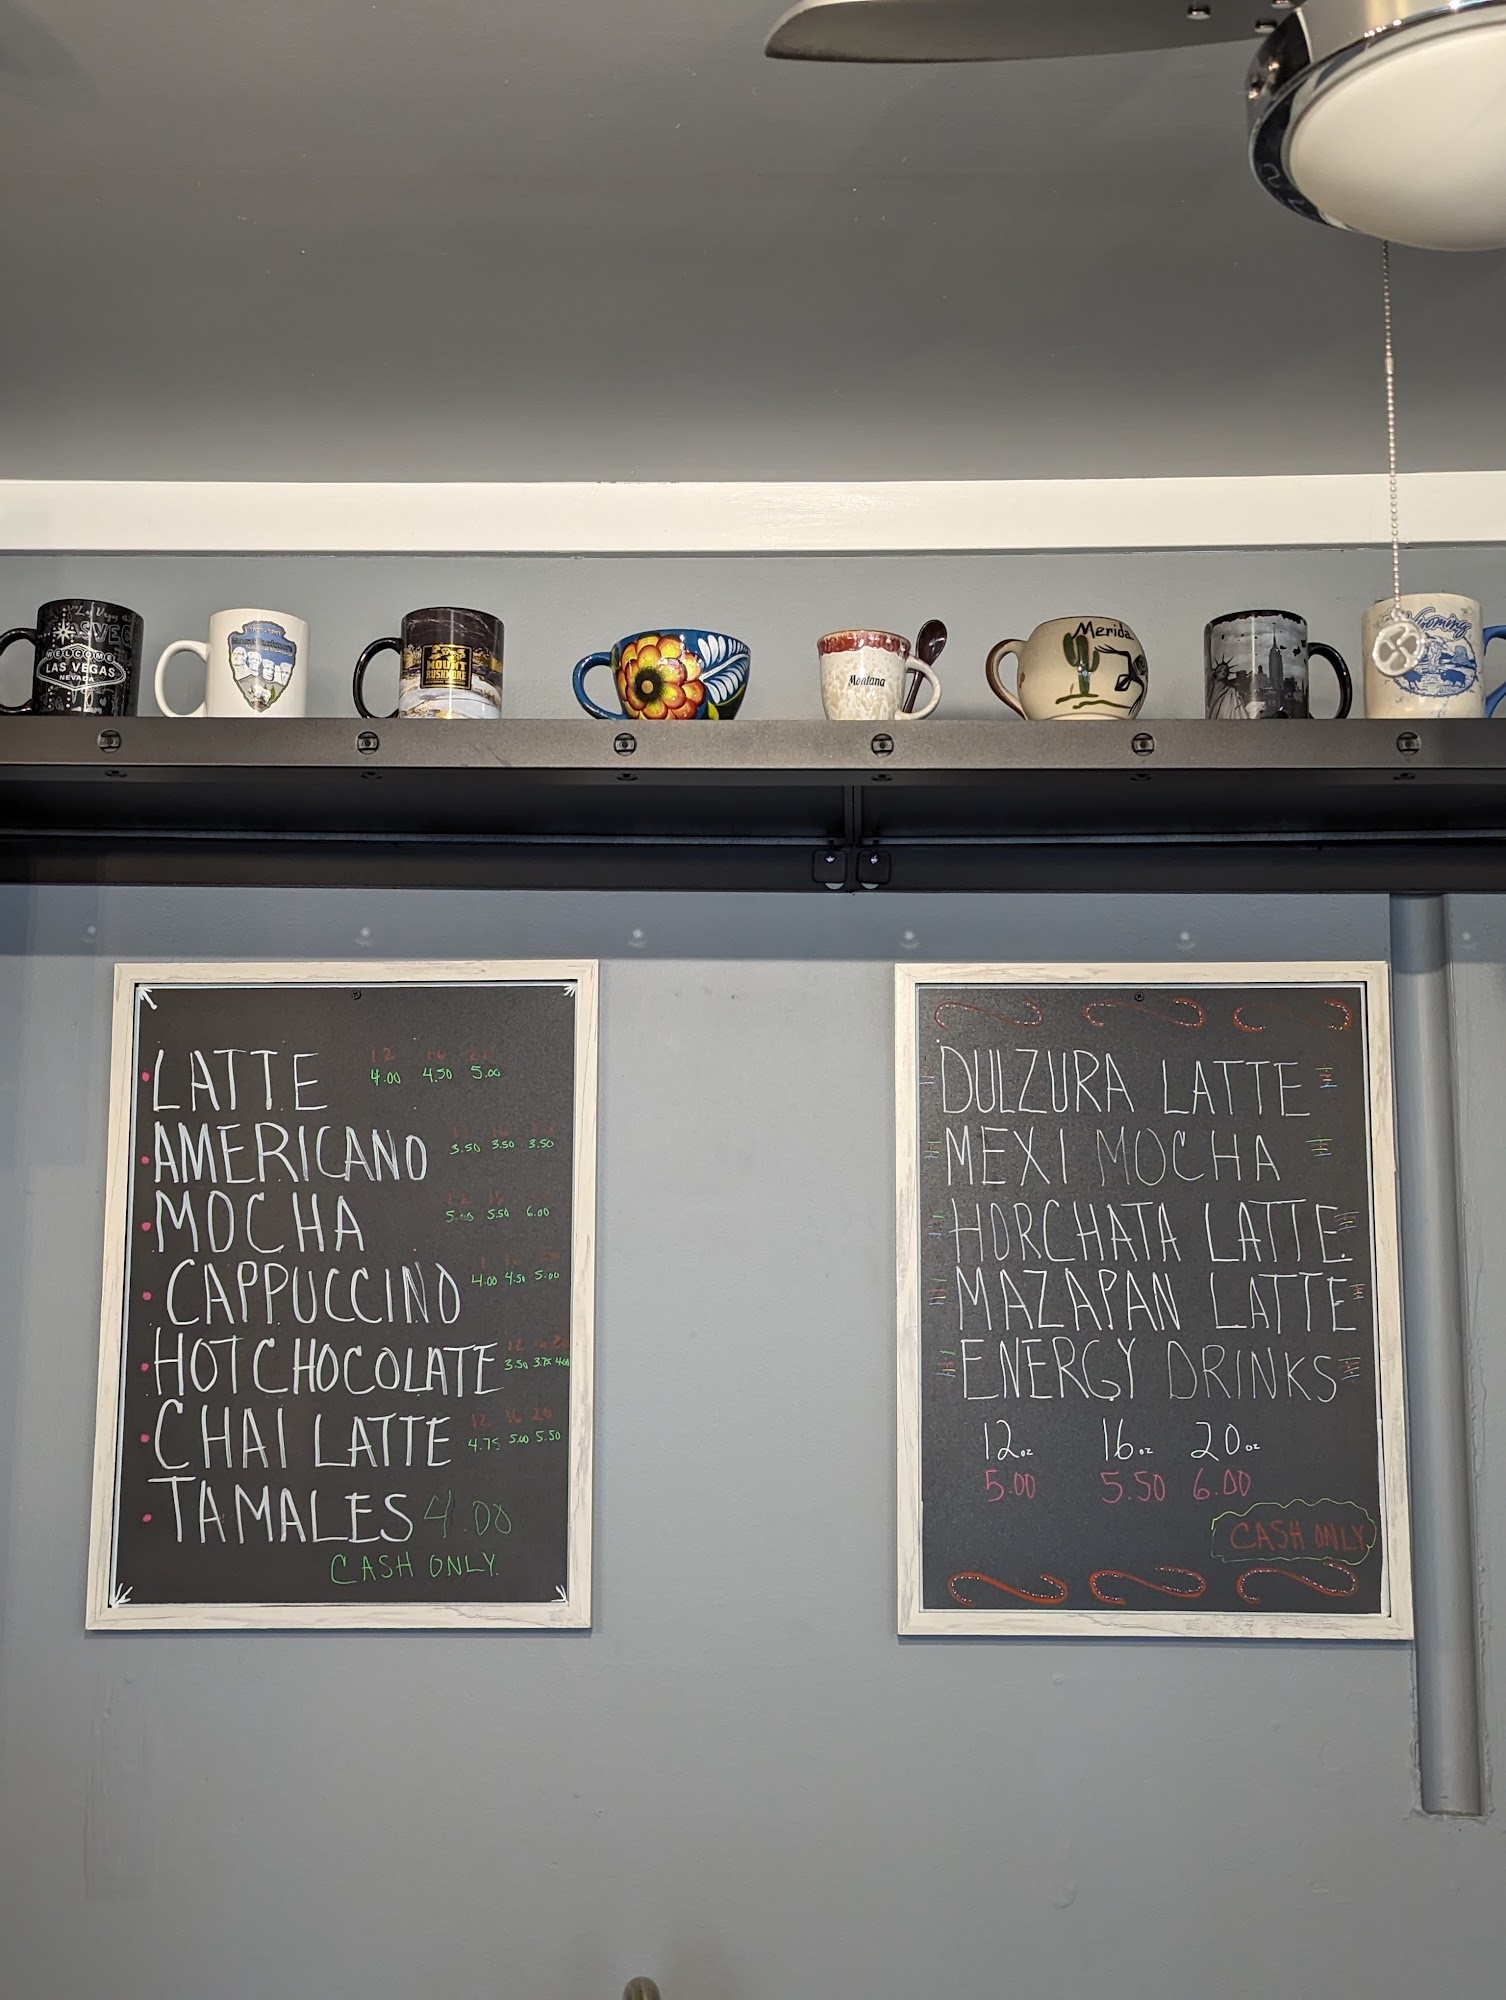 Las Vegas
WELCOME
LAS VEGAS
NEVADA
MOUNT
RUSHMORE
Montana
Merida
Wyoming
12 16
LATTE 4.00 4.50 5.00
AMERICANO 3.50 3.50 3.50
MOCHA 5.00 5.50 6.00
CAPPUCCINO 4.00 4.50 5.00
12 20
HOT CHOCOLATE 3.50 3.75 4.00
12 16 20
CHAI LATTE 4.75 5.00 5.50
TAMALES 4.00
CASH ONLY.
DULZURA LATTE
MEXI MOCHA
HORCHATA LATTE
MAZAPAN LATTE
ENERGY DRINKS
12oz 16oz 20oz
5.00 5.50 6.00
CASH ONLY